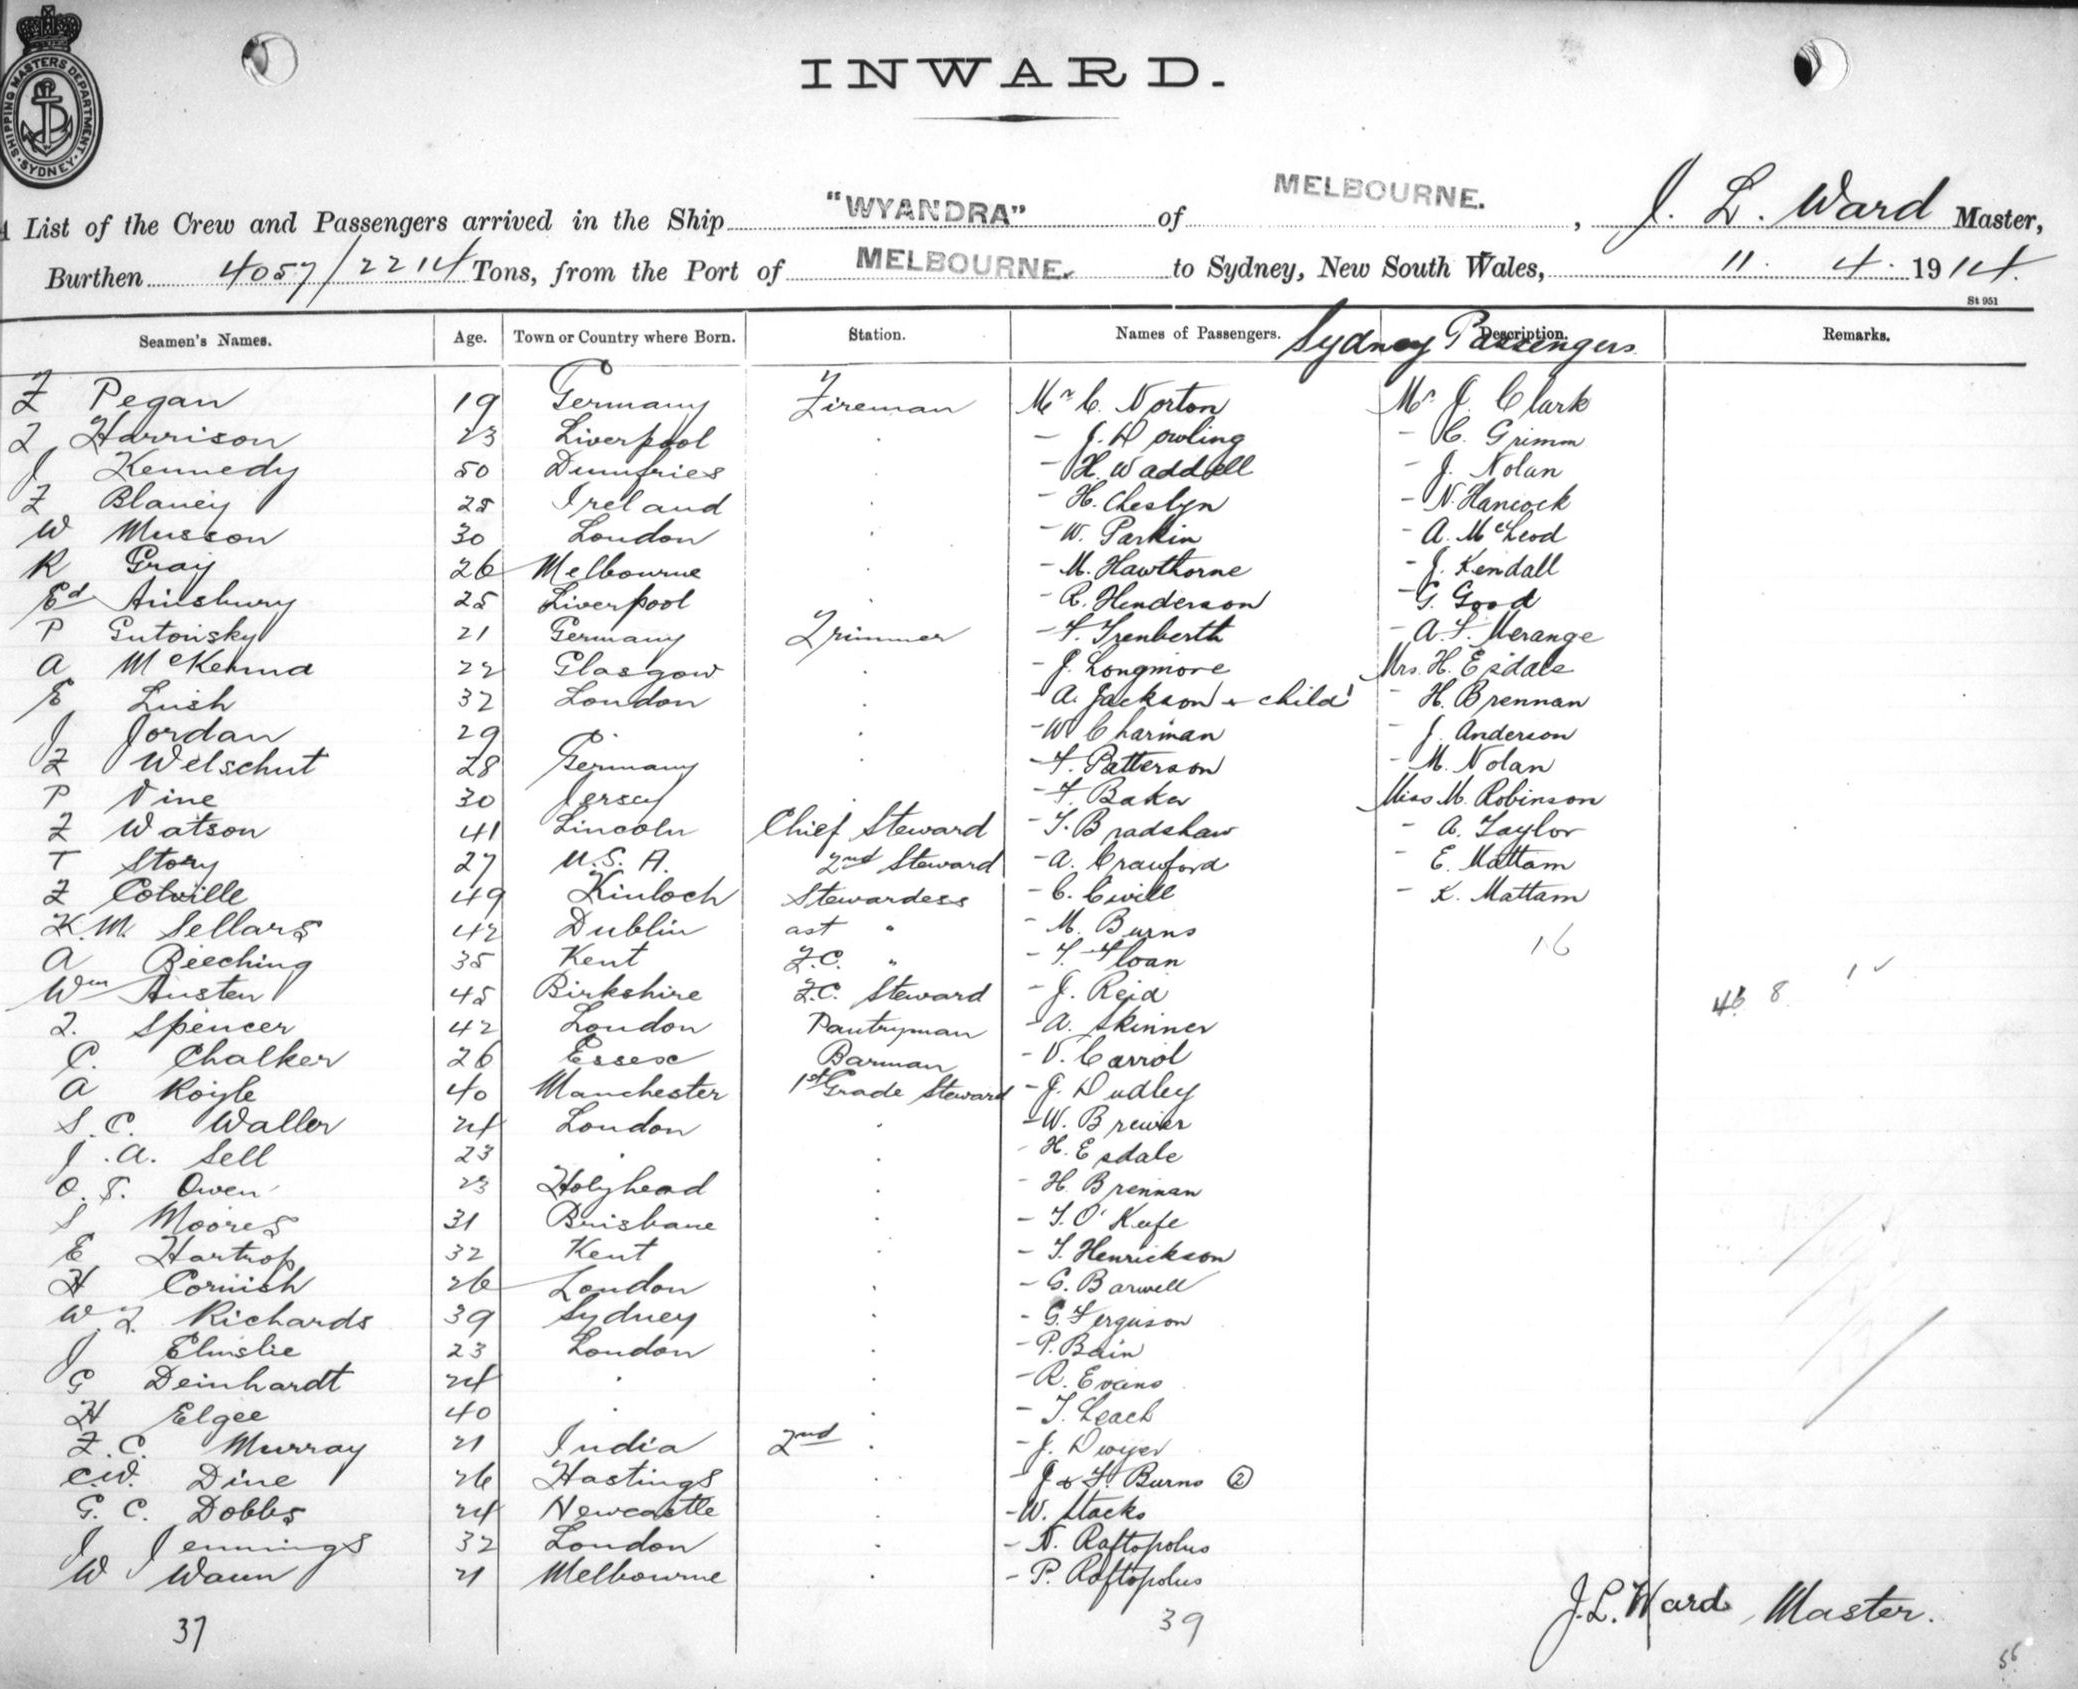 SHIPPING MASTERS DEPARTMENT. SYDNEY.
INWARD.
A List of the Crew and Passengers arrived in the Ship "WYANDRA" of MELBOURNE. , J. L. Ward Master,
Burthen 4057/2214 Tons, from the Port of MELBOURNE. to Sydney, New South Wales, 11. 4. 1914.
St 951
Seamen's Names. Age. Town or Country where Born. Station. Names of Passengers. Description. Remarks.
Sydney Passengers
F Pegan 19 Germany Fireman Mr C. Norton Mr J. Clark
F Harrison 23 Liverpool " - J. Dowling - C. Grimm
J Kennedy 50 Dumfries " - H. Waddell - J. Nolan
F Blaney 25 Ireland " - H. Cheslyn - N. Hancock
W Musson 30 London " - W. Parkin - A. McLeod
R Gray 26 Melbourne " - M. Hawthorne - J. Kendall
Ed Ainsbury 25 Liverpool " - R. Henderson - G. Good
P Gutowsky 21 Germany Trimmer - F. Trenberth - A. F. Merange
A McKenna 22 Glasgow " - J. Longmore Mrs. H. Esdale
E Lush 32 London " - A. Jackson & child 1 - H. Brennan
J Jordan 29 " " - W Charman - J. Anderson
F Welschut 28 Germany " - F. Patterson - M. Nolan
P Vine 30 Jersey " - F. Baker Miss M. Robinson
F Watson 41 Lincoln Chief Steward - T. Bradshaw - A. Taylor
T Story 27 U.S.A. 2nd Steward - A. Crawford - E. Mattam
F Colville 49 Kinloch Stewardess - C. Cwill - K. Mattam
K. M. Sellars 42 Dublin ast " - M. Burns
A Beeching 35 Kent F.C. " - T. Sloan 16
Wm Austen 45 Birkshire F.C. Steward - J. Reid 46 8 1
F. Spencer 42 London Pantryman - A. Skinner
C. Chalker 26 Essex Barman - V. Carrol
A Royle 40 Manchester 1st Grade Steward - J. Dudley
S. C. Waller 24 London " - W. Brewer
J. A. Sell 23 " " - H. Esdale
O. T. Owen 23 Holyhead " - H. Brennan
S Moores 31 Brisbane " - T. O'Keefe
E Hartrop 32 Kent " - T. Henrickson
H Cornish 26 London " - G. Barwell
W. F. Richards 39 Sydney " - G. Ferguson
J Elmslie 23 London " - P. Bain
G Deinhardt 24 " " - R. Evans
H Elgee 40 " " - T. Leach
F. C. Murray 21 India 2nd " - J. Dwyer
C.W. Dine 26 Hastings " - J & F. Burns 2
G. C. Dobbs 24 Newcastle " - W. Stacks
J Jennings 32 London " - N. Raftopolus
W Waun 21 Melbourne " - P. Raftopolus
37 39
J. L. Ward Master.
56